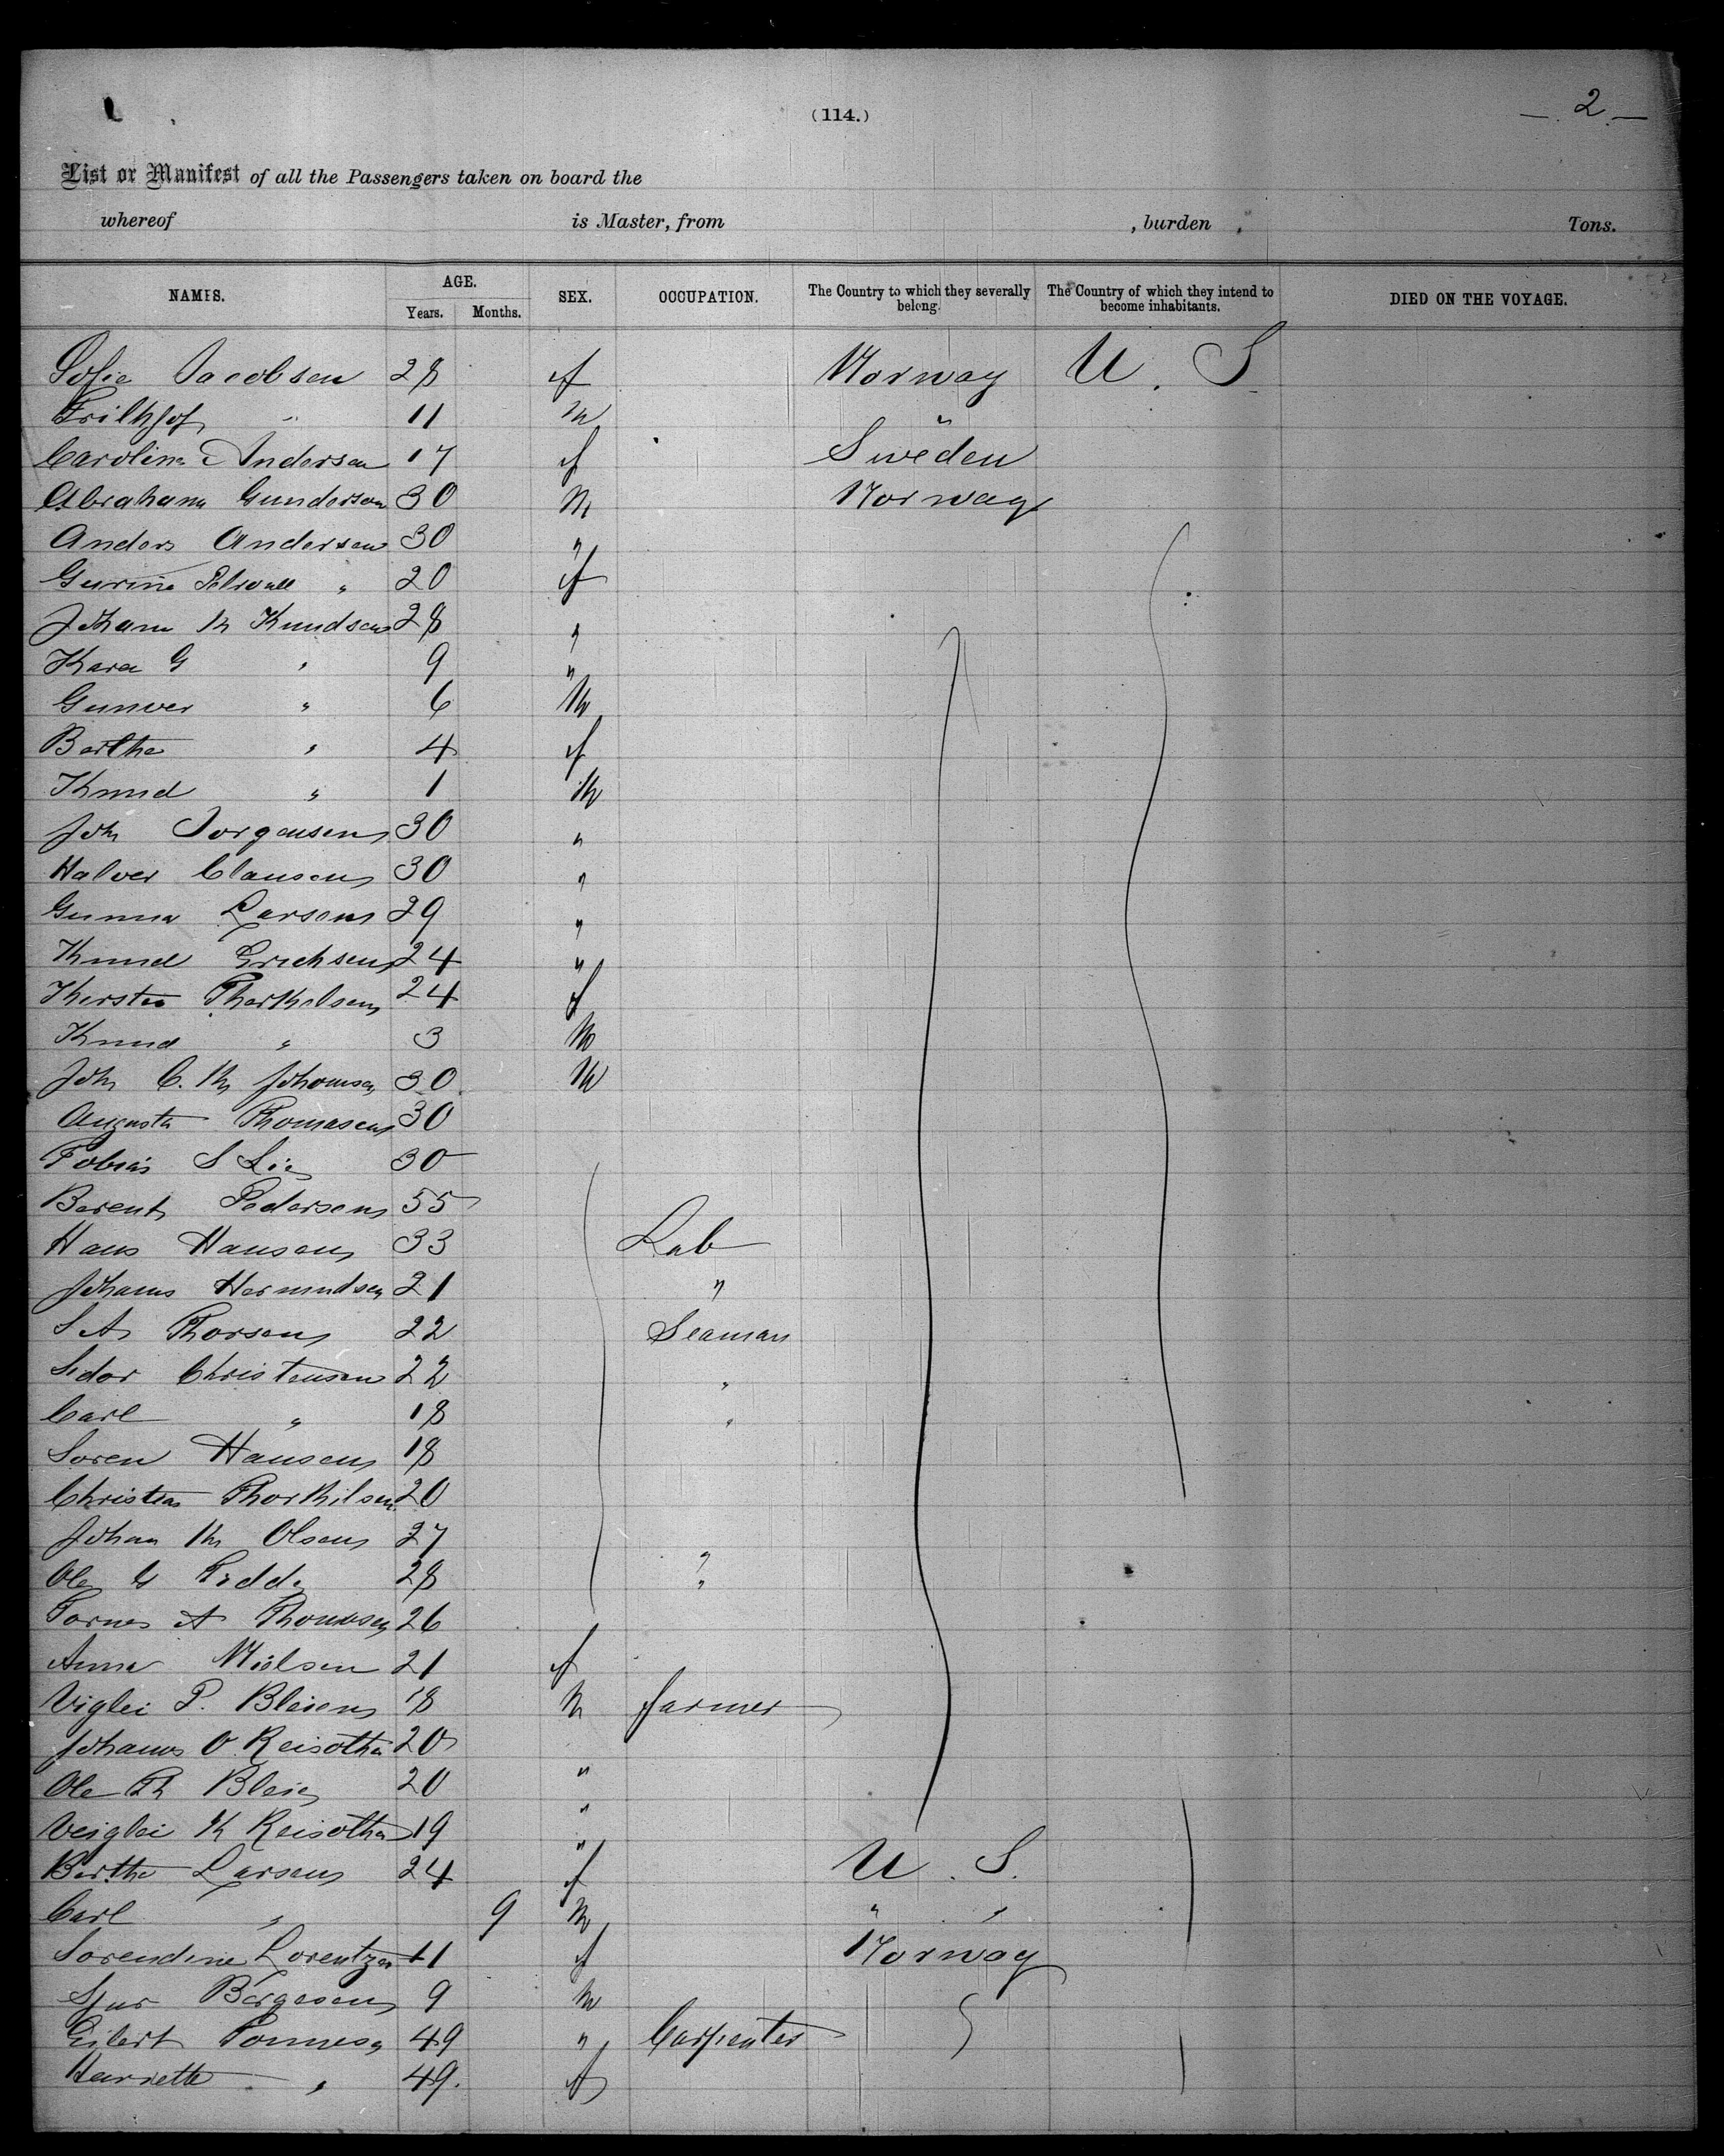 (114.)
— 2 —
List or Manifest of all the Passengers taken on board the
whereof is Master, from , burden , Tons.
NAMES. AGE. SEX. OCCUPATION. The Country to which they severally belong. The Country of which they intend to become inhabitants. DIED ON THE VOYAGE.
Years. Months.
Sofie Jacobsen 28 f Norway U. S
Frithjof " 11 m "
Carolina Andersen 17 f Sweden
Abraham Gunderson 30 M Norway
Anders Andersen 30 "
Gurine " 20 f
Johann M Knudsen 28 "
Kara G " 9 "
Gunver " 6 M
Berthe " 4 f
Knud " 1 M
Joh Jorgensen 30 "
Halver Clausen 30 "
Gunna Larsen 29 "
Knud Erichsen 24 "
Kersten Therkelsen 24 f
Knud " 3 M
Joh C. M Johomsen 30 M
Augusta Thomasen 30
Tobias S Lie 30
Berent Pedersen 55
Hans Hansen 33 Lab
Johanes Hermundsen 21 "
S A Thorsen 22 Seaman
Sidor Christensen 22 "
Carl " 18 "
Soren Hansen 18
Christian Thorkilsen 20
Johan M Olsen 27 "
Ole G 28 "
A Thomasen 26
Anna Nielsen 21 f
Viglei P. Bleien 18 M farmer
Johanes O Reisothe 20 "
Ole Th Bleie 20 "
Veiglei K Reisothe 19 "
Berthe Larsen 24 f U. S.
Carl " 9 M " "
Sorendine Lorentzen 11 f Norway
Sjur Børgesen 9 M
Eilert Tonnesen 49 " Carpenter
Henriette " 49. f